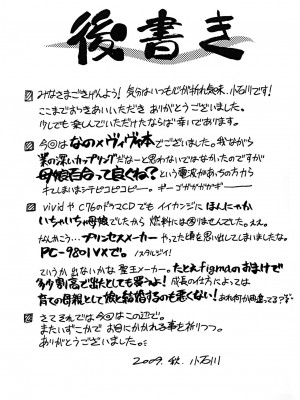 後書き
みなさまごきげんよう! 気分はいつも心が折れ気味、小石川です!
ここまでおつきあいいただき ありがとうございました。
少しでも楽しんでいただけたならば 幸いであります。
今回はなのメヴィヴ本でございました。我ながら
業の深いカップリングだなーと思わないではなかったのですが
母娘百合って良くね?という電波があちの方から
キてしまいまシテピコピコピー。ポーゴガガガガギー
vividやC76のドラマCDでも イイカンジに ほんにゃか
いちゃいちゃ母娘でしたから 燃料には困りませんでした。ええ。
なんかこう… プリンセスメーカー やってた頃を思い出してしまいましたな。
PC-9801VXで。ノスタルジイ!
というか 出ないかな 聖王メーカー。たとえfigmaのおまけで
多少割高で出たとしても買うよ! 成長の仕方によっては
育ての母親として彼と結婚するのも悪くない! あれ何か間違ってる?ママ
さて それでは今回はこの辺で。
またいずこかで お目にかかれる事を祈りつつ。
ありがとうございました。
2009.秋. 小石川